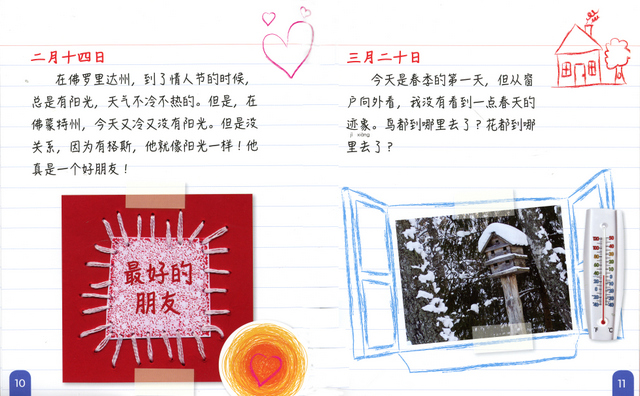 二月十四日
在佛罗里达州，到了情人节的时候，
总是有阳光，天气不冷不热的。但是，在
佛蒙特州，今天又冷又没有阳光。但是没
关系，因为有格斯，他就像阳光一样！他
真是一个好朋友！
最好的
朋友
10
三月二十日
今天是春季的第一天，但从窗
户向外看，我没有看到一点春天的
迹象。鸟都到哪里去了？花都到哪
jì xiàng
里去了？
11